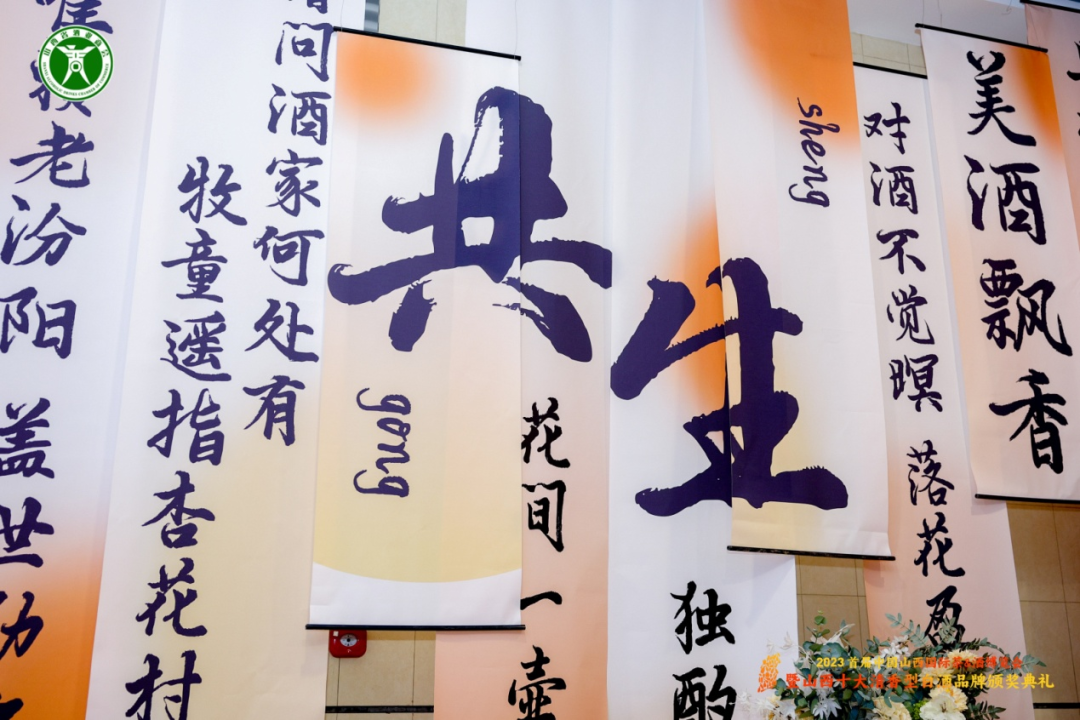 老汾阳 盖世功
借问酒家何处有
牧童遥指杏花村
共
gong
生
sheng
花间一壶
独酌
对酒不觉暝 落花盈
美酒飘香
2023首届中国山西国际
暨山西十大清香型白酒品牌颁奖典礼